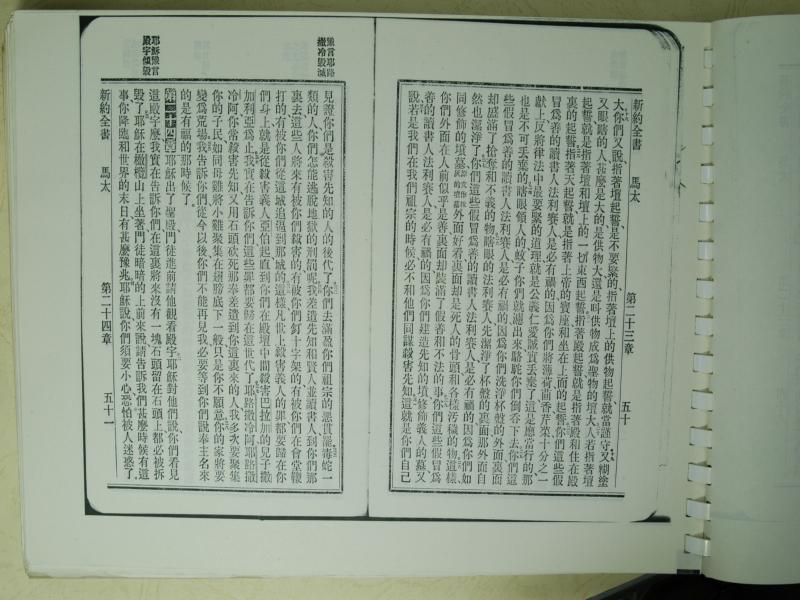 新約全書 馬太 第二十三章 五十
大你們又說指著壇起誓是不要緊的指著壇上的供物起誓就當謹守又糊塗
又眼瞎的人甚麼是大的是供物大還是叫供物成爲聖物的壇大人若指著壇
起誓就是指著壇和壇上的一切東西起誓指著殿起誓就是指著殿和住在殿
裏的起誓指著天起誓就是指著上帝的寶座和坐在上面的起誓你們這些假
冒爲善的讀書人法利賽人是必有禍的因爲你們將薄荷茴香芹菜十分之一
獻上反將律法中最要緊的道理就是公義仁愛誠實丟棄了這是應當行的那
也是不可丟棄的瞎眼領人的蚊子你們就濾出來駱駝你們倒吞下去你們這
些假冒爲善的讀書人法利賽人是必有禍的因爲你們洗淨杯盤的外面裏面
却盛滿了搶奪和不義的物瞎眼的法利賽人先潔淨了杯盤的裏面那外面自
然也潔淨了你們這些假冒爲善的讀書人法利賽人是必有禍的因爲你們如
同修飾的墳墓外面好看裏面却是死人的骨頭和各樣汚穢的物這樣
你們外面在人前似乎是善裏面却裝滿了假善和不法的事你們這些假冒爲
善的讀書人法利賽人是必有禍的因爲你們建造先知的墳修飾義人的墓又
說若是我們在我們祖宗的時候必不和他們同謀殺害先知這就是你們自己
豫言耶路
撒冷毀滅
見證你們是殺害先知的人的後代了你們去滿盈你們祖宗的惡貫罷毒蛇一
類的人你們怎能逃脫地獄的刑罰呢我差遣先知和賢人並讀書人到你們那
裏去這些人將來有被你們殺害的有被你們釘十字架的有被你們在會堂鞭
打的有被你們從這城追逼到那城的這樣凡世上殺害義人的罪都要歸在你
們身上就是從殺害義人亞伯起直到你們在殿壇中間殺害巴拉加的兒子撒
加利亞爲止我實在告訴你們這些罪都要歸在這世代了耶路撒冷阿耶路撒
冷阿你常殺害先知又用石頭砍死那奉差遣到你這裏來的人我多次要聚集
你的子民如同母雞將小雞聚集在翅膀底下一般只是你不願意你的家將要
變爲荒場我告訴你們從今以後你們不能再見我必要等到你們說奉主名來
的是有福的那時候了
耶穌豫言
殿宇傾毀
第二十四章耶穌出了聖殿門徒進前請他觀看殿宇耶穌對他們說你們看見
這殿宇麼我實在告訴你們在這裏將來沒有一塊石頭留在石頭上都必被拆
毀了耶穌在橄欖山上坐著門徒暗暗的上前來說請告訴我們甚麼時候有這
事你降臨和世界的末日有甚麼豫兆耶穌說你們須要小心恐怕被人迷惑了
新約全書 馬太 第二十四章 五十一